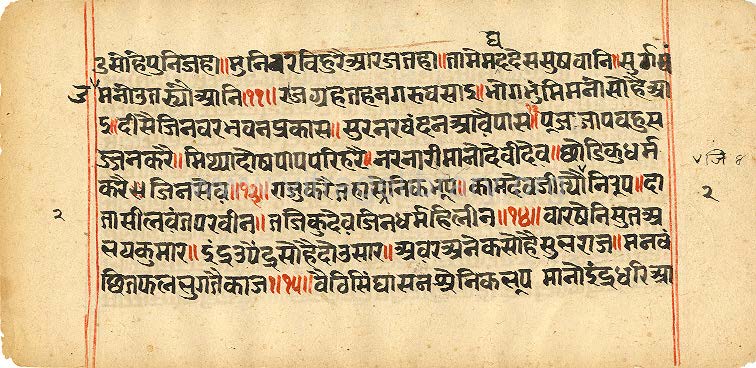 घ
उ सोहै पुनि जहा॥मुनिवर विहरै आरज तहा॥तामे मदेस सुषवानि॥सुर्ग सं
उ मनो उतर्यौ आनि॥११॥राजग्रह तहन गरुवसाइ॥भोगभुंमि मनो सोहै आ
इ॥दीसै जिनवर भवन प्रकास॥सुरनर वंदन आवै पास॥पूजा जाप वहु स
ज्जन करै॥मिथ्या दोष पाप परिहरै॥नर नारी मानो देवी देव॥छाडि कुधर्म
v जि ४
करै जिन सेव॥१३॥राजु करै तहा स्रेनिक भूप॥कामदेव जीत्यौ निरूप॥दा
२
२
ता सीलवंत परवीन॥तजि कुदेव जिनधर्महि लीन॥१४॥वारषेनि सुत अ
भयकुमार॥इंद्र उपेंद्र सोहै दोउ सार॥अवर अनेक सोहै सुत राज॥मनवं
छित फल भुगतै काज॥१५॥वैठि सिंघासन श्रेनिक भूप मानो इंद्र धरि आ